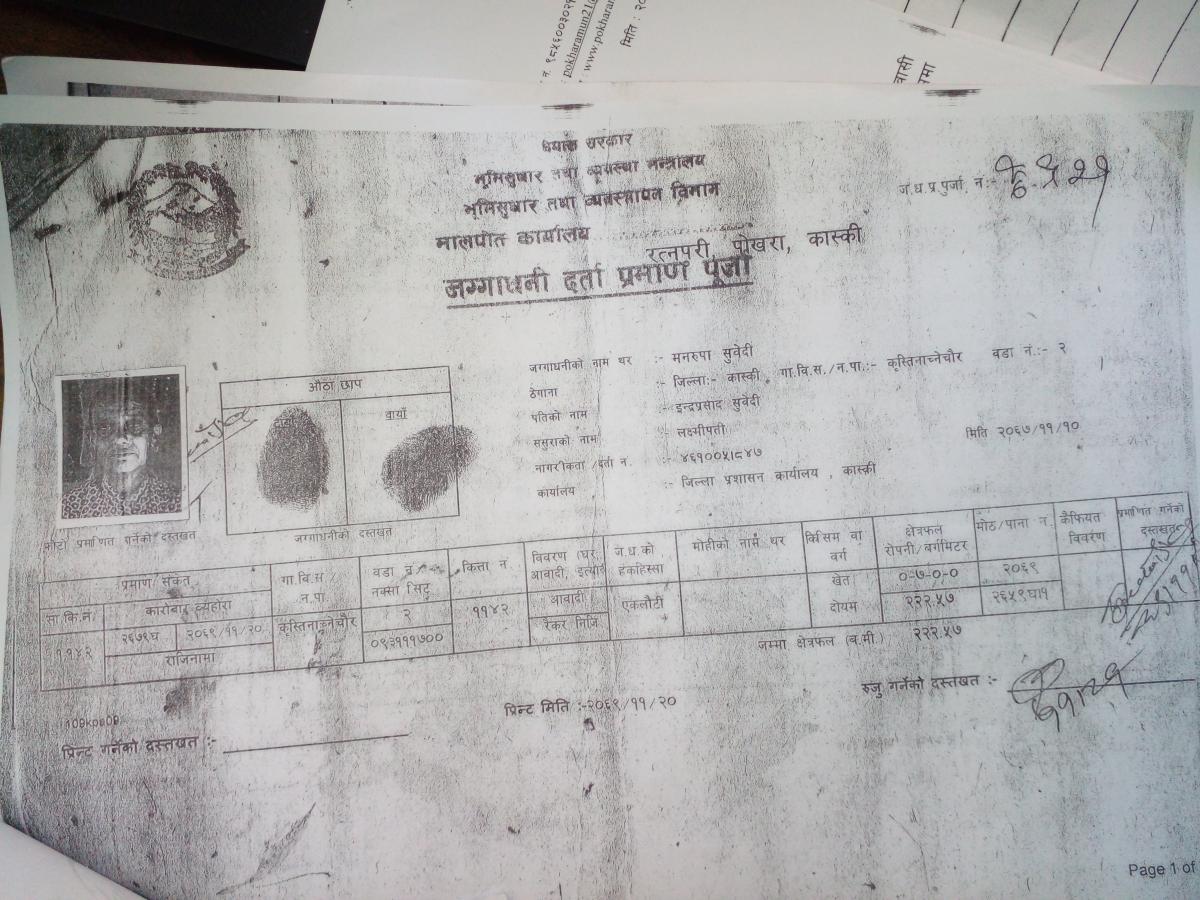 न. ९८५६००३०२१
pokharamun21@
: www.pokharam
मिति : २०
वासी
नेपाल सरकार
भूमिसुधार तथा व्यवस्था मन्त्रालय
भूमिसुधार तथा व्यवस्थापन विभाग
मालपोत कार्यालय
रत्नपरी, पोखरा, कास्की
जग्गाधनी दर्ता प्रमाण पूर्जा
ज.ध.प्र.पुर्जा. न:-
जग्गाधनीको नाम थर :- मनरुपा सुवेदी
ठेगाना :- जिल्ला:- कास्की गा.वि.स./न.पा.:- कृस्तिनाच्नेचौर वडा नं:- २
पतिको नाम :- इन्द्रप्रसाद सुवेदी
ससुराको नाम :- लक्ष्मीपती
नागरीकता /दर्ता न. :- ४६१००५१८४७ मिति २०६७/११/१०
कार्यालय :- जिल्ला प्रशासन कार्यालय , कास्की
औठा छाप
दायाँ बायाँ
फोटो प्रमाणित गर्नेको दस्तखत
जग्गाधनीको दस्तखत
प्रमाण संकेत गा.वि.स / न.पा. वडा न / नक्सा सिट कित्ता न. विवरण (घर, आवादी, इत्यादी ज.ध.को हकहिस्सा मोहीको नाम थर किसिम वा वर्ग क्षेत्रफल रोपनी/बर्गमिटर मोठ/पाना न. कैफियत विवरण प्रमाणित गर्नेको दस्तखत
सा.कि.नं. कारोबार व्यहोरा
११४२ २६७९घ २०६९/११/२० कृस्तिनाच्नेचौर २ ११४२ आवादी एकलौटी खेत ०-७-०-० २०६९
राजिनामा ०९३१११७०० रैकर निजि दोयम २२२.५७ २६५९घा१
जम्मा क्षेत्रफल (ब.मी.) २२२.५७
रुजु गर्नेको दस्तखत :-
प्रिन्ट मिति :-२०६९/११/२०
प्रिन्ट गर्नेको दस्तखत :-
Page 1 of